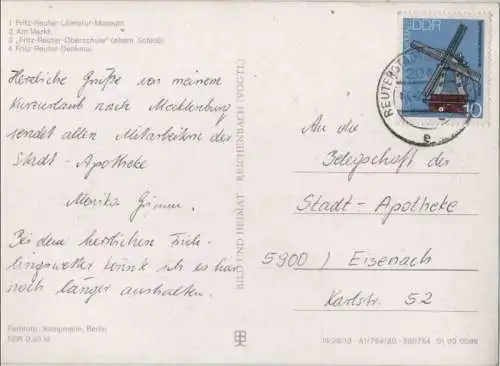 1 Fritz-Reuter-Literatur-Museum
2 Am Markt
3 „Fritz-Reuter-Oberschule" (ehem. Schloß)
4 Fritz-Reuter-Denkmal
Herzliche Grüße von meinem
Kurzurlaub nach Mecklenburg
sendet allen Mitarbeitern der
Stadt-Apotheke
Monika Grimm.
Bei dem herrlichen Früh-
lingswetter könnte ich es hier
noch länger aushalten.
Farbfoto: Kempmann, Berlin
BILD UND HEIMAT · REICHENBACH (VOGTL)
DDR
10
REUTERSTADT
e
An die
Belegschaft der
Stadt-Apotheke
5900 / Eisenach
Karlstr. 52